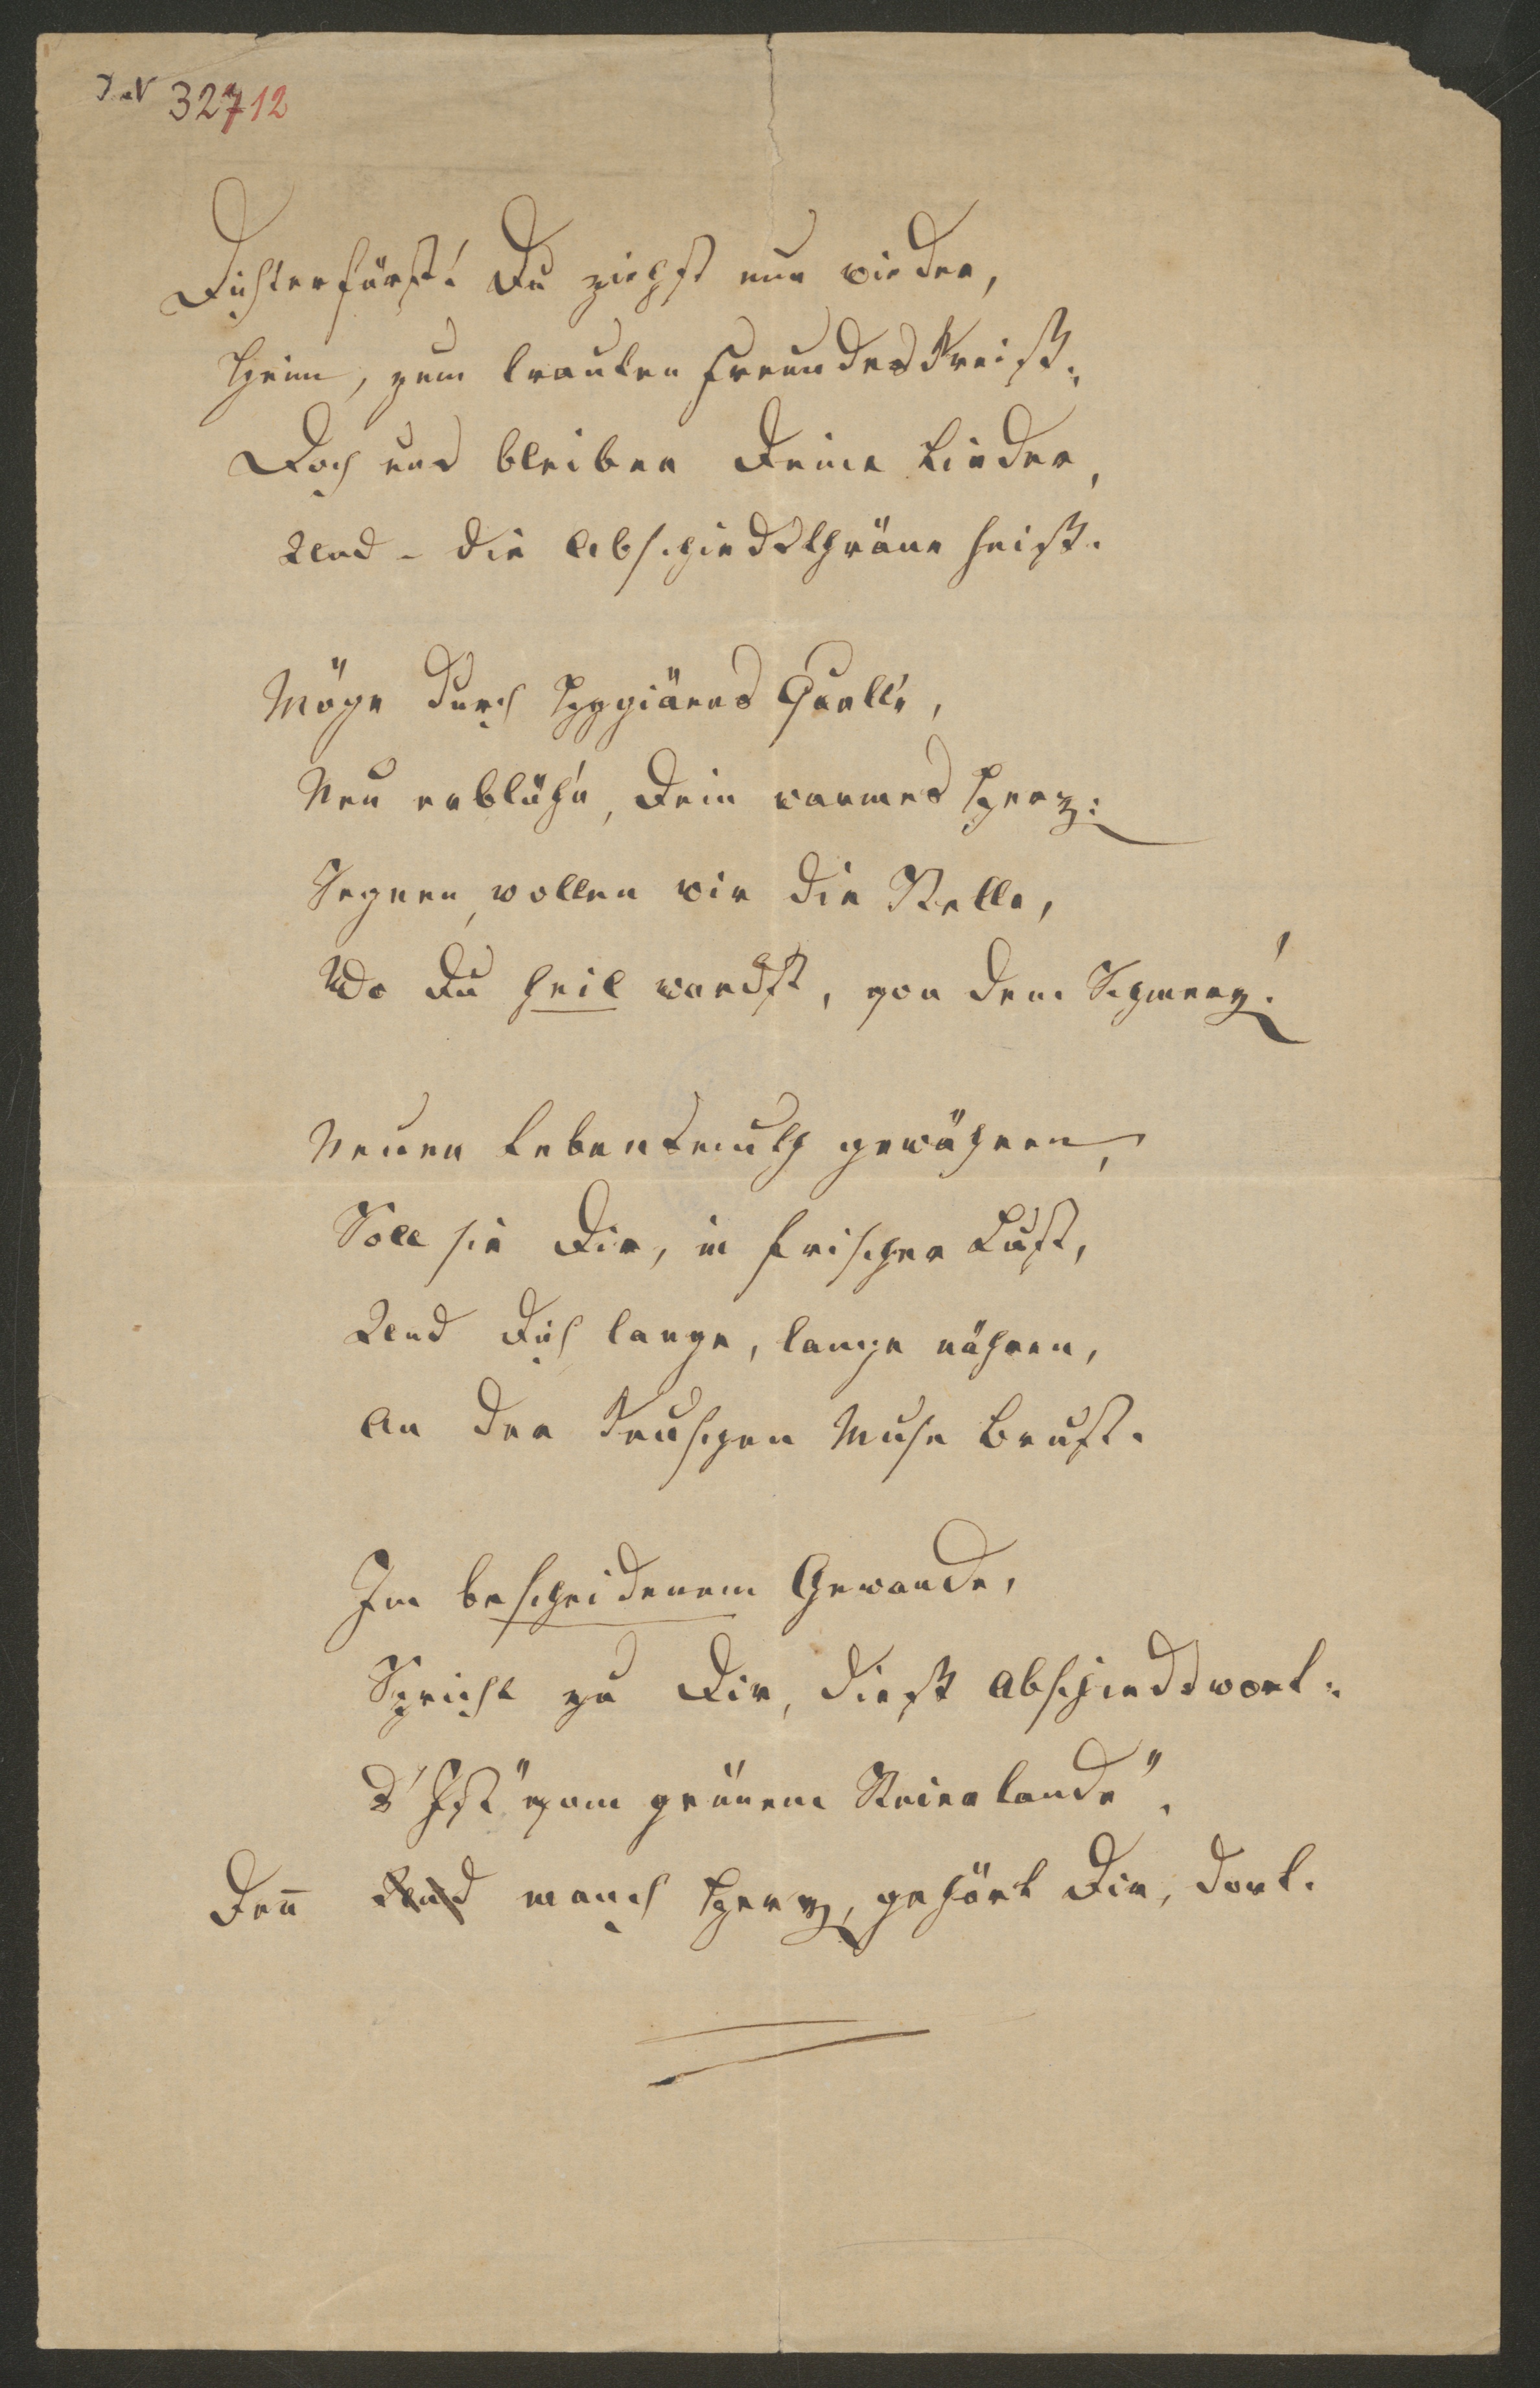 I.N 32712
Dichterfürst! Du ziehst nun wieder,
Heim, zum trauten Freundeskreiß.
Doch uns bleiben Deine Lieder,
Und – die Abschiedsthräne heiß.
Möge durch Hygiäens Quelle,
Neu erblüh'n, Dein warmes Herz:
Segnen, wollen wir die Stelle,
Wo Du heil wardst, von dem Schmerz!
Neuen Lebensmuth gewähren,
Soll sie Dir, in frischer Lust,
Und Dich lange, lange nähren,
An der keuschen Muse Brust.
Im bescheidenem Gewande,
Spricht zu Dir, dieß Abschiedswort:
S' Ist "vom grünem Steierlande".
Denn Und manch Herz, gehört Dir, dort.